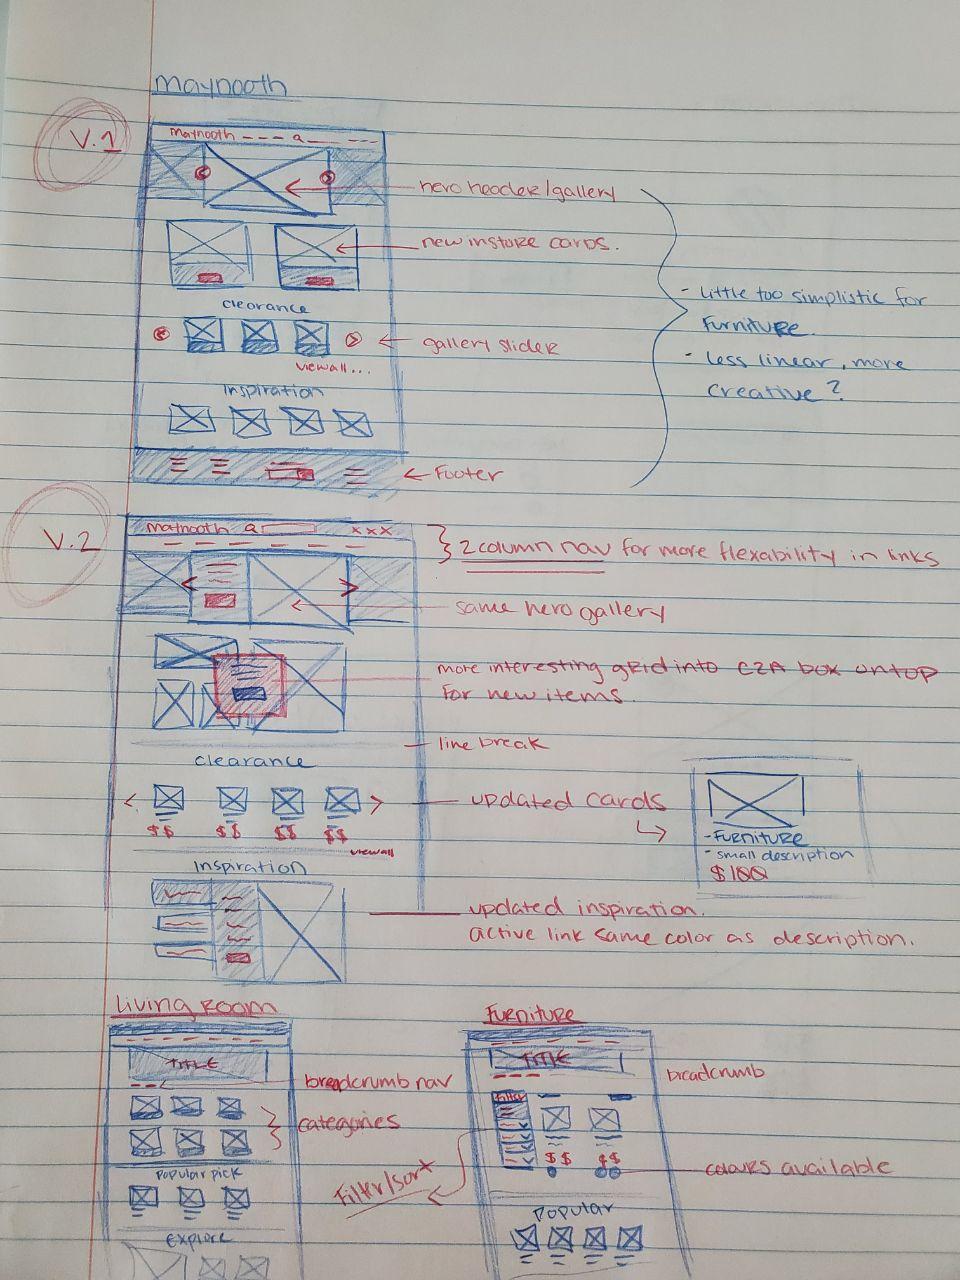 maynooth
V.1
maynooth
hero header/gallery
new instore cards.
clearance
gallery slider
view all...
Inspiration
Footer
- Little too simplistic for
Furniture.
- less linear, more
creative?
V.2
maynooth
xxx
2 column nav for more flexability in links
same hero gallery
more interesting grid into C2A box on top
for new items.
line break
clearance
updated cards
$$ $$ $$ $$
view all
- Furniture
- small description
$100
Inspiration
updated inspiration.
active link same color as description.
Living Room
TITLE
breadcrumb nav
categories
Popular pick
Explore
Furniture
TITLE
breadcrumb
Filter
$$ $$
Filter/sort
colours available
Popular